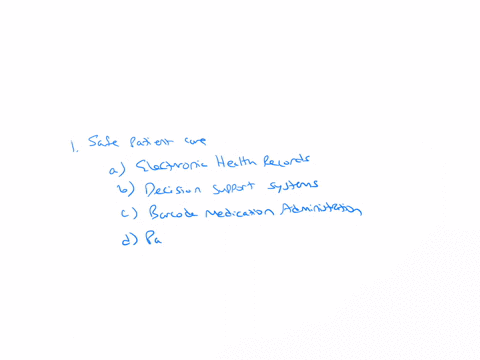 1. Safe Patient care
a) Electronic Health Records
b) Decision support systems
c) Barcode Medication Administration
d) Pa